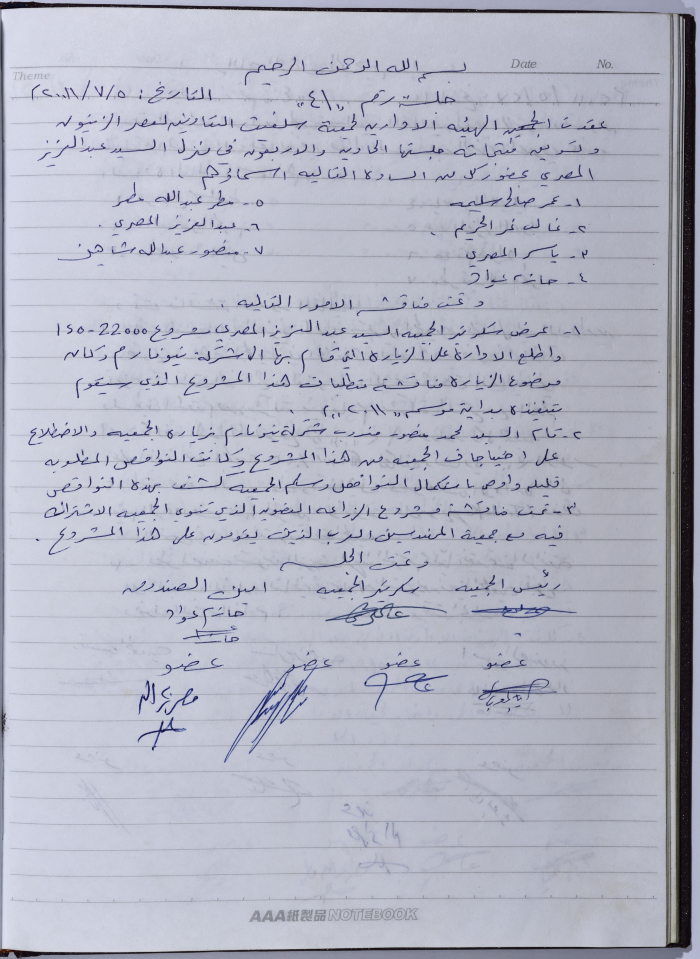 Theme
Date
No.
بسم الله الرحمن الرحيم
جلسة رقم "٤١" التاريخ: ٢٠١١/٧/٥
عقدت الهيئه الاداريه لجمعية سلفيت التعاونيه لعصر الزيتون
وتسويق منتجاته جلستها الحاديه والاربعون في منزل السيد عبدالعزيز
المصري بحضور كل من الساده التاليه اسمائهم :
١- عمر صالح سليمه ٥- مطر عبدالله مطر
٢- غالب نمر الحريم ٦- عبدالعزيز المصري .
٣- ياسر المصري ٧- منصور عبدالله شاهين
٤- حازم عواد
وتمت مناقشة الامور التاليه :
١- عرض سكرتير الجمعيه السيد عبدالعزيز المصري مشروع 22000-150
واطلع الاداره على الزياره التي قام بها الى شركة نيوفارم وكان
موضوع الزياره مناقشة متطلبات هذا المشروع الذي سيقوم
بتنفيذه بداية موسم "٢٠١١" .
٢- قام السيد محمد منصور مندوب شركة نيوفارم بزيارة الجمعيه والاضطلاع
على احتياجات الجمعيه من هذا المشروع وكانت النواقص المطلوبه
قليله واوصى باستكمال النواقص وسلم الجمعيه كشف بهذه النواقص
٣- تمت مناقشة مشروع الزراعه العضويه الذي تنوي الجمعيه الاشتراك
فيه مع جمعية المهندسين العرب الذين يقومون على هذا المشروع .
وتمت الجلسه
رئيس الجمعيه سكرتير الجمعيه امين الصندوق
حازم عواد
عضو عضو عضو عضو
AAA紙製品NOTEBOOK